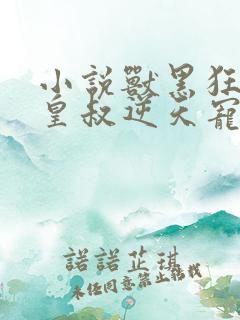 小說獸黑狂
皇叔逆天寵
諾諾芷琪
未经同意禁止转载